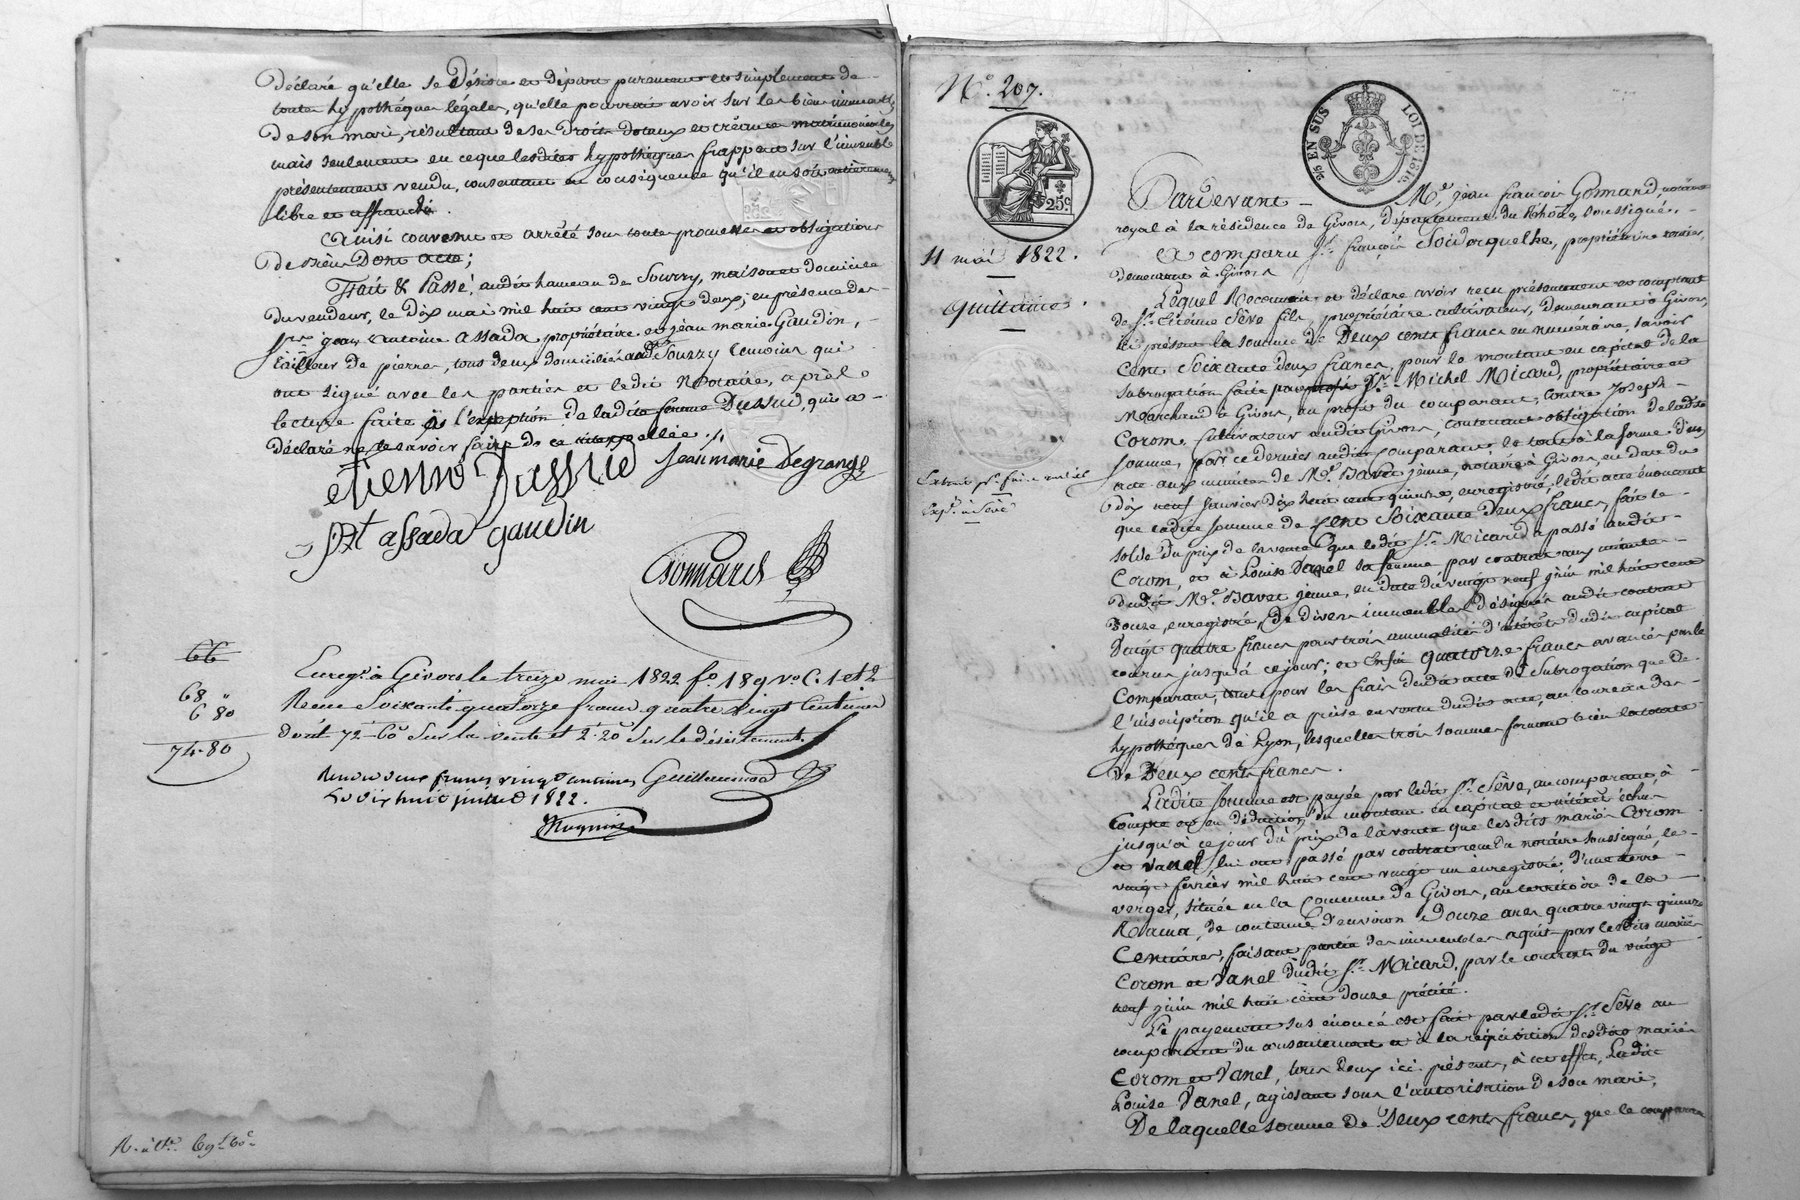 déclaré qu'elle se désiste et départ purement et simplement de
toutes hypothéques légales, qu'elle pourrait avoir sur les biens immeubles
de son mari, résultant de ses droits dotaux et créances matrimoniales
mais seulement en ceque lesdites hypothéques frappent sur l'immeuble
présentement vendu, consentant en conséquence qu'il en soit entièrement
libre et affranchi.
Ainsi convenu et arrêté sous toute promesses et obligations
de biens Dont acte;
Fait & Passé, audit hameau de Sourzy, maison et domicile
du vendeur, le dix mai mil huit cent vingt deux; en présence des
srs jean Antoine Assada propriétaire et jean marie Gaudin,
tailleur de pierres, tous deux domiciliés audit Sourzy temoins qui
ont signé avec les parties et ledit Notaire, après
lecture faite à l'exeption de ladite femme Dussud, qui a
déclaré ne le savoir faire de ce interpellée ./.
etienne Dussud Jean marie Degrange
assada gaudin
Gonnard
66
68 "
6 80
74-80
Enregé à Givors le treize mai 1822 fo 189 vo C. 1 et 2
Reçu soixante quatorze francs quatre vingt Centimes
dont 72-60 sur la vente et 2-20 sur le désistement.
Guillermod
Le dix huit 1822.
No. 207.
25c
25 EN SUS LOI DE 1816.
11 mai 1822.
Quittance.
Pardevant Me. jean françois Gonnard, notaire
royal à la résidence de Givors, département du Rhône, soussigné,
A comparu sr. françois Soidorquelhe, propriétaire rentier,
demeurant à Givors
Lequel Reconnait et déclare avoir reçu présentement et comptant
de sr. Etiénne Sève fils, propriétaire cultivateur, demeurant à Givors,
ici présent la somme de Deux cents francs en numéraire, savoir
Cent Soixante deux francs, pour le montant en capital de la
subrogation faite par sr. Michel Micard, propriétaire et
Marchand à Givors, au profit du comparant, contre Joseph
Corom, cultivateur audit Givors, contenant obligation de ladite
somme, par ce dernier audit comparant, le tout à la forme d'un
acte aux minutes de Me. Bavet jeune, notaire à Givors, en date du
dix neuf janvier dix huit cent quinze, enregistré, ledit acte énoncant
que ladite somme de Cent Soixante deux francs, fait le
solde du prix de la vente que ledit sr. Micard a passé audit
Corom, et à Louise Vanel sa femme par contrat aux minutes
dudit Me. Bavet jeune, en date du vingt neuf juin mil huit cent
Douze, enregistré, de divers immeubles désignés audit contrat
Vingt quatre francs pour trois annualités d'intérêts dudit capital
courus jusqu'à ce jour; et Enfin quatorze francs avancés par le
Comparant, tant pour les frais dudit acte de subrogation que de
l'inscription qu'il a prise en vertu dudit acte, au bureau des
hypothéques de Lyon, lesquelles trois sommes forment bien la totale
de Deux cents francs.
Ladite somme est payée par ledit sr. Sève, au comparant, à
Compte et en déduction du montant en capital et intérêt échus
jusqu'à ce jour du prix de la vente que lesdits mariés Corom
et Vanel lui ont passé par contrat reçu du notaire soussigné, le
vingt février mil huit cent vingt un enregistré, d'une terre
verger, située en la Commune de Givors, au territoire de la
Rama, de contenue d'environ Douze ares quatre vingt quinze
Centiares, faisant partie des immeubles aquit par lesdits mariés
Corom et Vanel dudit sr. Micard, par le contrat du vingt
neuf juin mil huit cent douze précité.
Le payement sus énoncé est fait par ledit sr. Sève au
comparant du consentement et à la réquisition desdits mariés
Corom et Vanel, tous deux ici présents, à cet effet, Ladite
Louise Vanel, agissant sous l'autorisation de son mari,
De laquelle somme de Deux cents francs, que le comparant